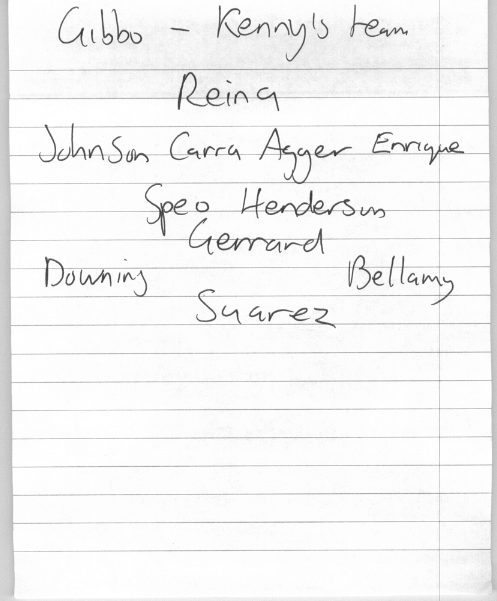 Gibbo - Kenny's team
Reina
Johnson Carra Agger Enrique
Speo Henderson
Gerrard
Downing Bellamy
Suarez